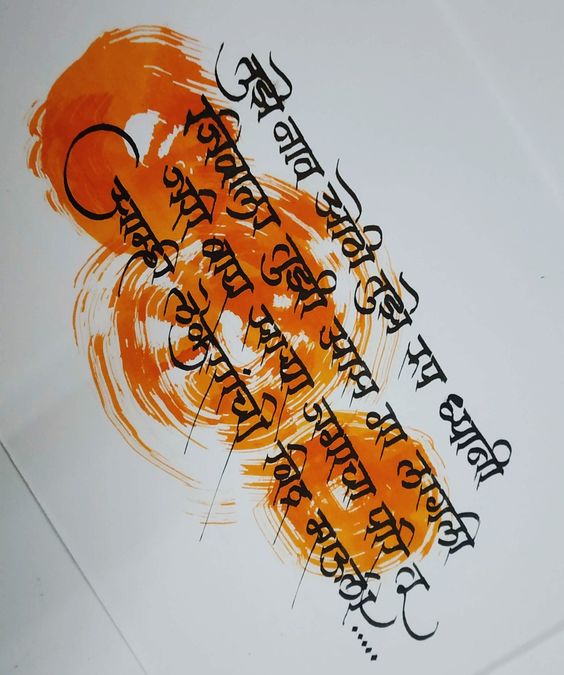 तुझे नाव ओठी तुझे रुप ध्यानी
जिवाला तुझी आस गा लागली
जरी बाप साऱ्या जगाचा परि तू
आम्हा लेकरांची विठू माउली.....